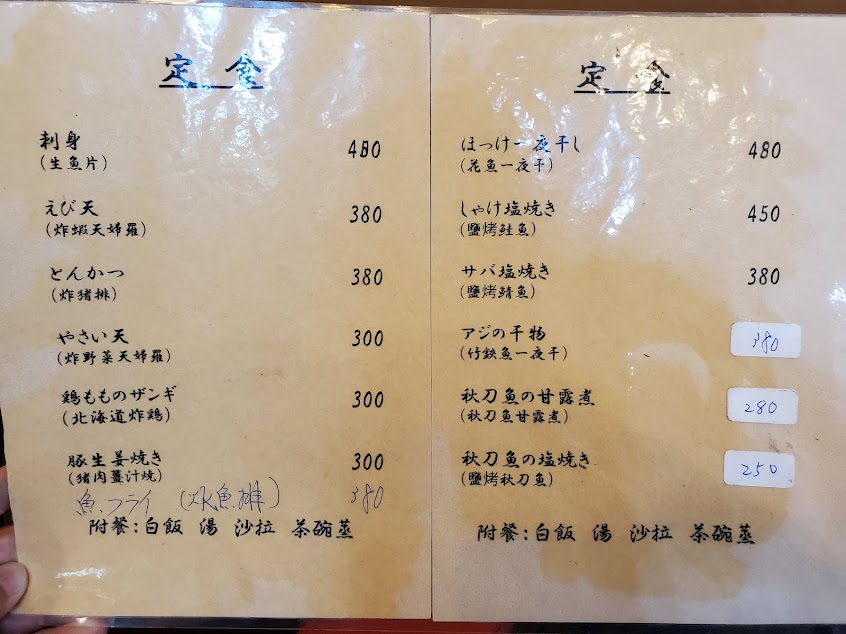 定食
刺身
(生魚片)
えび天 380
(炸蝦天婦羅)
とんかつ 380
(炸猪排)
やさい天 300
(炸野菜天婦羅)
鶏もものザンギ 300
(北海道炸鶏)
豚生姜焼き 300
(猪肉薑汁燒)
魚フライ (炸魚排) 380
附餐:白飯 湯 沙拉 茶碗蒸
定食
ほっけ一夜干し 480
(花魚一夜干)
しゃけ塩焼き 450
(鹽烤鮭魚)
サバ塩焼き 380
(鹽烤鯖魚)
アジの干物 380
(竹鋏魚一夜干)
秋刀魚の甘露煮 280
(秋刀魚甘露煮)
秋刀魚の塩焼き 250
(鹽烤秋刀魚)
附餐:白飯 湯 沙拉 茶碗蒸